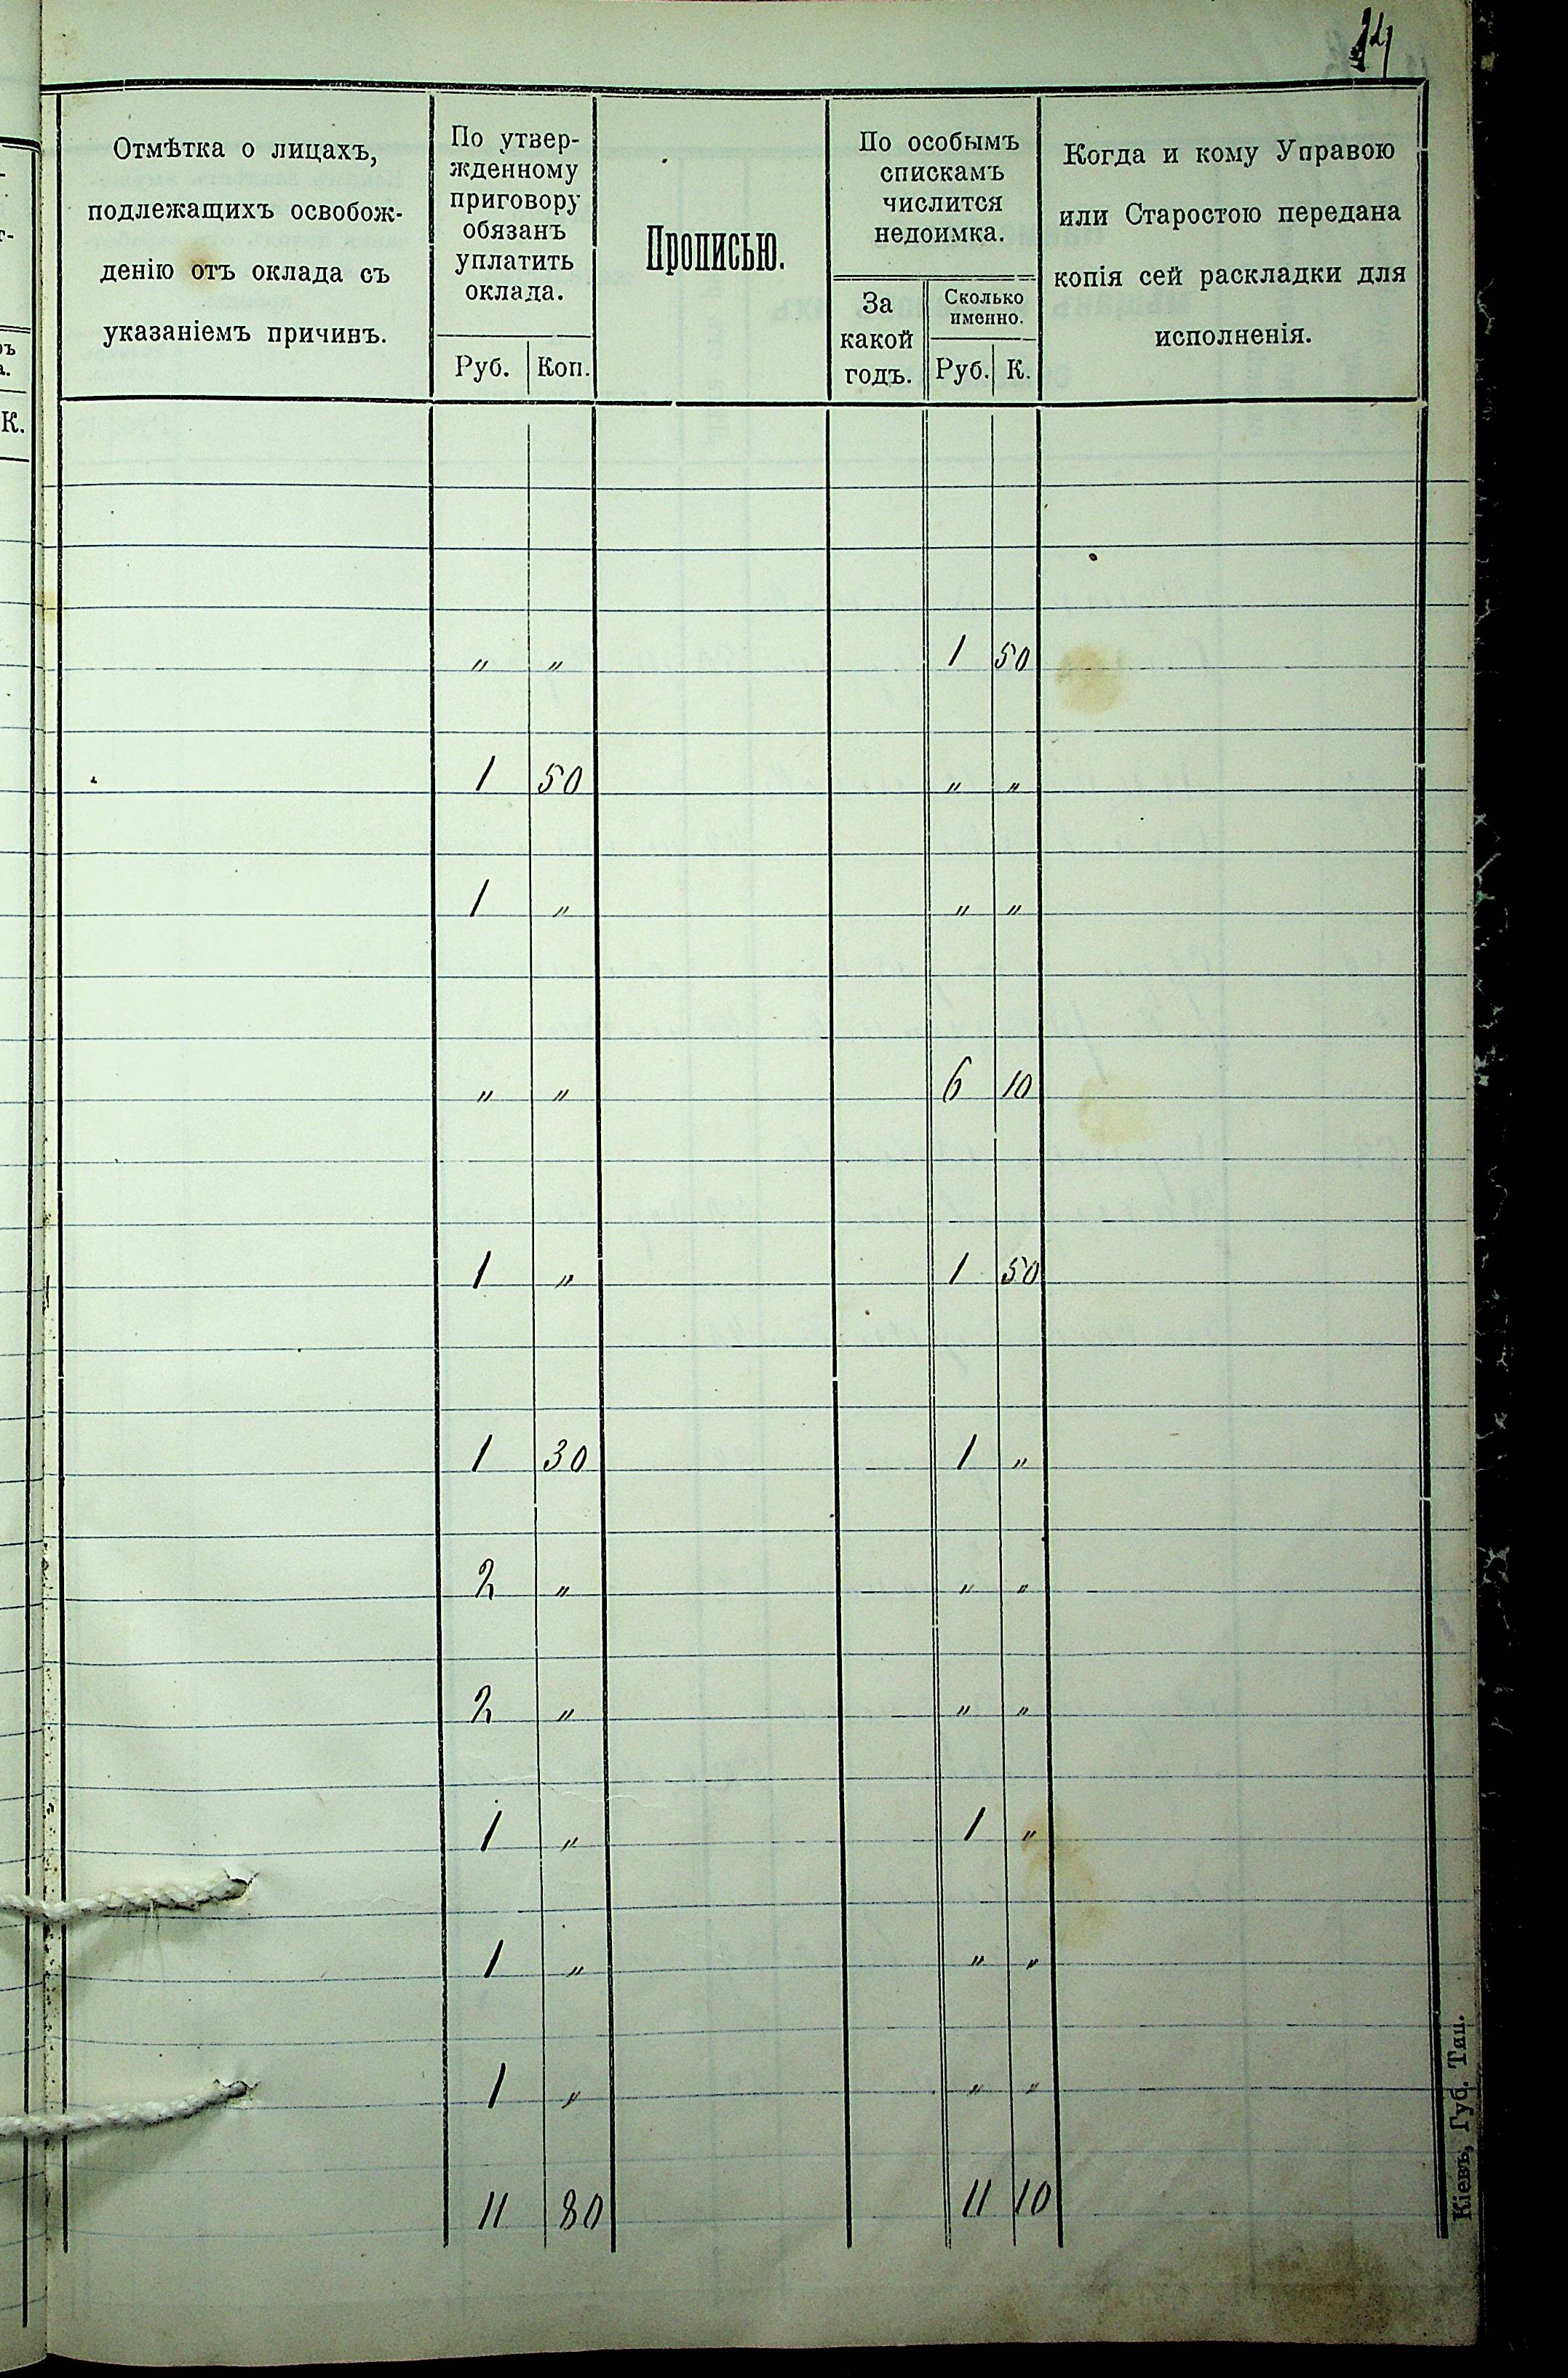 14
Отмѣтка о лицахъ,
подлежащихъ освобож-
денію отъ оклада съ
указаніемъ причинъ.
По утвер-
жденному
приговору
обязанъ
уплатить
оклада.
Руб. Коп.
Прописью.
По особымъ
спискамъ
числится
недоимка.
За
какой
годъ.
Сколько
именно.
Руб. К.
Когда и кому Управою
или Старостою передана
копія сей раскладки для
исполненія.
К.
„ „ 1 50
1 50 „ „
1 „ „ „
„ „ 6 10
1 „ 1 50
1 30 1 „
2 „ „ „
2 „ „ „
1 „ 1 „
1 „ „ „
1 „ „ „
11 80 11 10
Кіевъ, Губ. Тип.